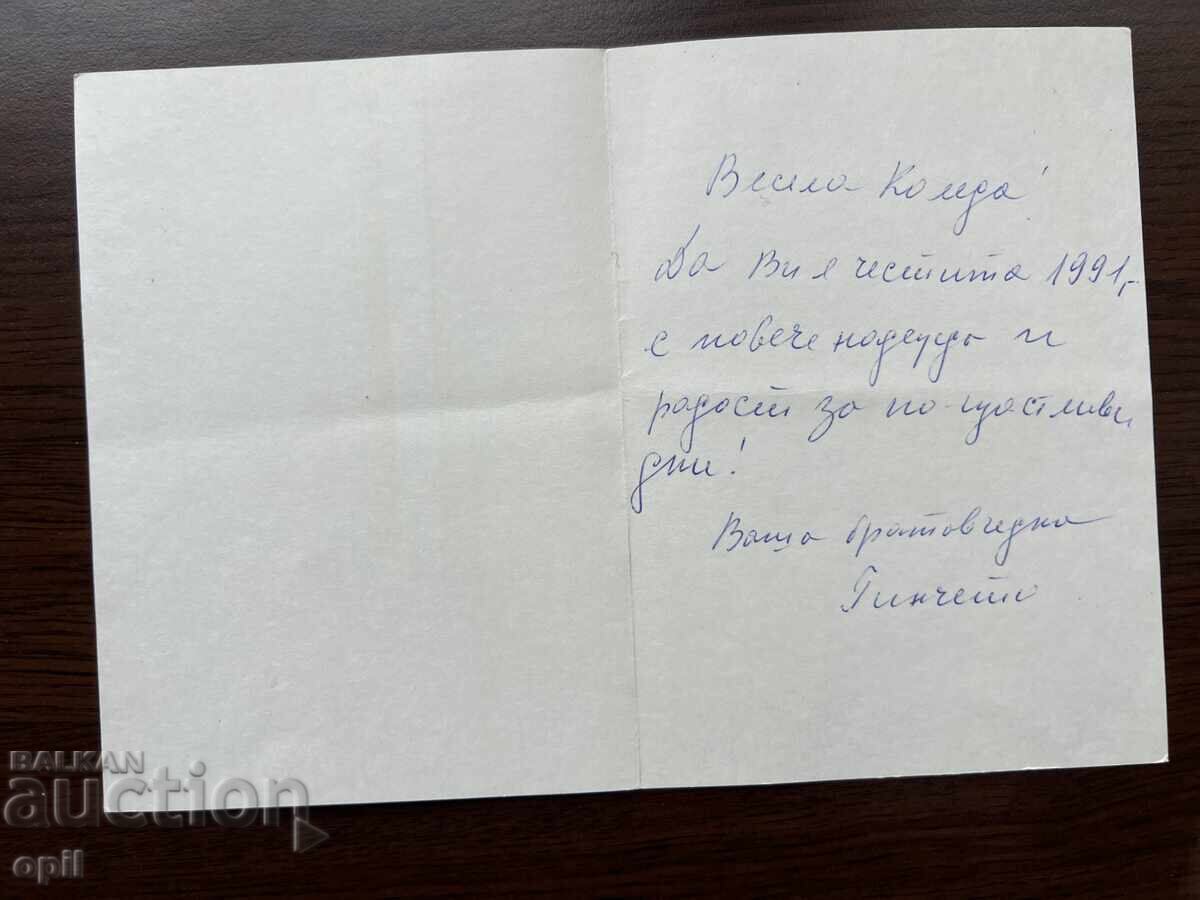 Весела Коледа!
Да Ви е честита 1991,-
с повече надежди и
радост за по-щастливи
дни!
Ваша братовчедка
Гинчето
BALKAN
auction
opil